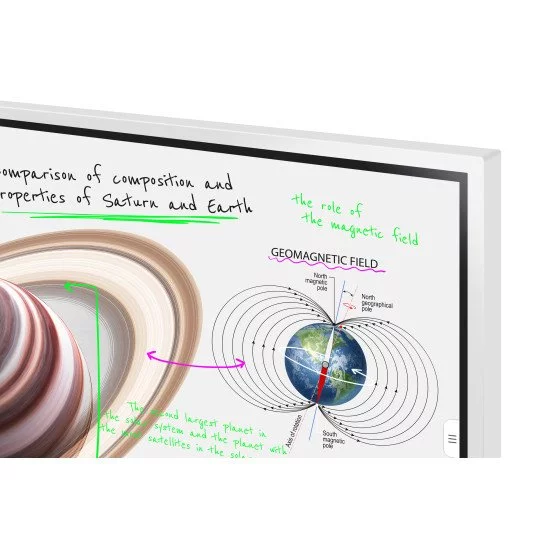 omparison of composition and
roperties of Saturn and Earth
the role of
the magnetic field
GEOMAGNETIC FIELD
North
magnetic
pole
North
geographical
pole
The second largest planet in
the solar system and the planet with
the most satellites in the sola
Axis of rotation
South
magnetic
pole